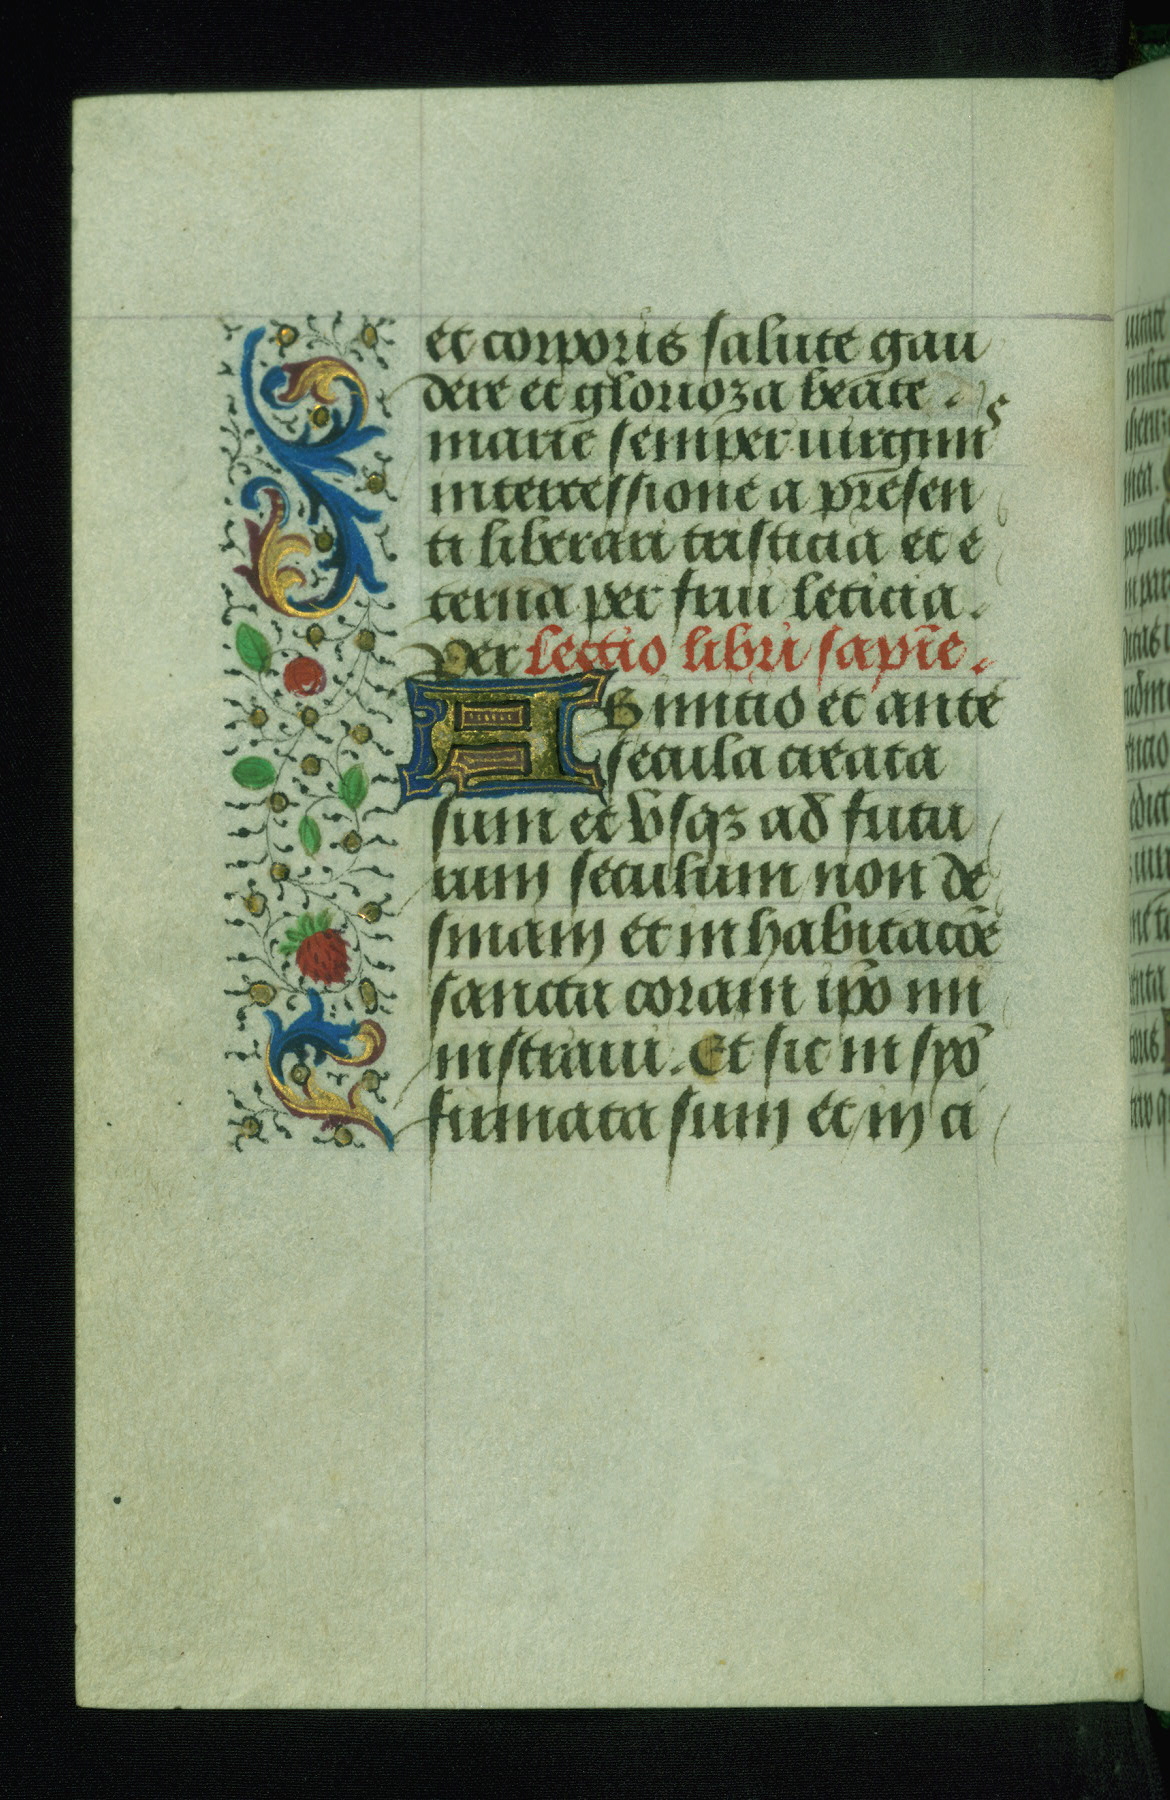 et corporis salute gau
dere et glorioza beate .
marie semper uirginis
intercessione a presen
ti liberari tristicia et e
terna per frui leticia.
Per Lectio libri sapīe.
AB initio et ante
secula creata
sum et vsqꝫ ad futu
rum seculum non de
sinam et in habitacōe
sancta coram ipō mi
nistraui. Et sic in syō
firmata sum et in a